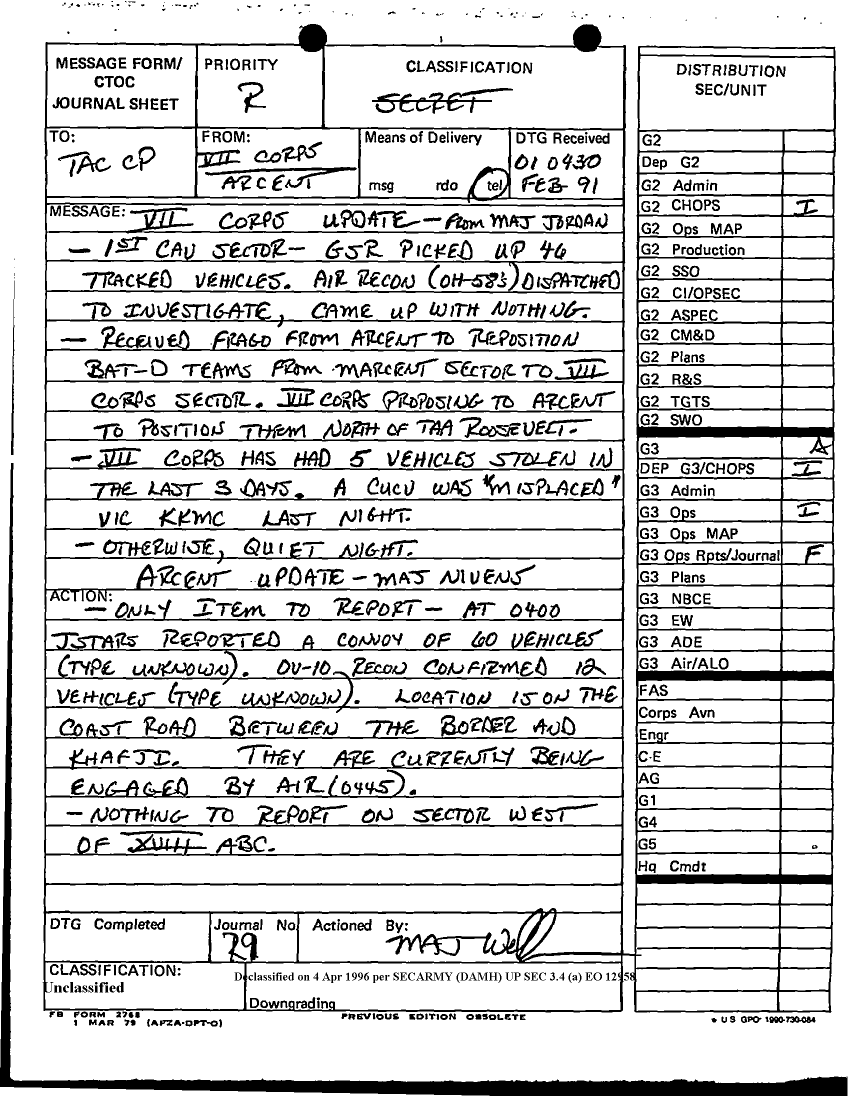 MESSAGE FORM/ CTOC JOURNAL SHEET
PRIORITY
R
CLASSIFICATION
SECRET
TO:
TAC CP
FROM:
VII CORPS
ARCENT
Means of Delivery
msg rdo tel
DTG Received
01 0430
FEB 91
MESSAGE: VII CORPS UPDATE — FROM MAJ JORDAN
— 1ST CAV SECTOR — GSR PICKED UP 46
TRACKED VEHICLES. AIR RECON (OH-58's) DISPATCHED
TO INVESTIGATE, CAME UP WITH NOTHING.
— RECEIVED FRAGO FROM ARCENT TO REPOSITION
BAT-D TEAMS FROM MARCENT SECTOR TO VII
CORPS SECTOR. VII CORPS PROPOSING TO ARCENT
TO POSITION THEM NORTH OF TAA ROOSEVELT.
— VII CORPS HAS HAD 5 VEHICLES STOLEN IN
THE LAST 3 DAYS. A CUCV WAS "MISPLACED"
VIC KKMC LAST NIGHT.
— OTHERWISE, QUIET NIGHT.
ARCENT UPDATE — MAJ NIVENS
ACTION: — ONLY ITEM TO REPORT — AT 0400
JSTARS REPORTED A CONVOY OF 60 VEHICLES
(TYPE UNKNOWN). OV-10 RECON CONFIRMED 12
VEHICLES (TYPE UNKNOWN). LOCATION IS ON THE
COAST ROAD BETWEEN THE BORDER AND
KHAFJI. THEY ARE CURRENTLY BEING
ENGAGED BY AIR (0445).
— NOTHING TO REPORT ON SECTOR WEST
OF XVIII ABC.
DTG Completed
Journal No
29
Actioned By:
MAJ
CLASSIFICATION:
Unclassified
Declassified on 4 Apr 1996 per SECARMY (DAMH) UP SEC 3.4 (a) EO 12958
Downgrading
FB FORM 2768
1 MAR 79 (AFZA-DPT-O)
PREVIOUS EDITION OBSOLETE
DISTRIBUTION
SEC/UNIT
G2
Dep G2
G2 Admin
G2 CHOPS I
G2 Ops MAP
G2 Production
G2 SSO
G2 CI/OPSEC
G2 ASPEC
G2 CM&D
G2 Plans
G2 R&S
G2 TGTS
G2 SWO
G3 A
DEP G3/CHOPS I
G3 Admin
G3 Ops I
G3 Ops MAP
G3 Ops Rpts/Journal F
G3 Plans
G3 NBCE
G3 EW
G3 ADE
G3 Air/ALO
FAS
Corps Avn
Engr
C-E
AG
G1
G4
G5
Hq Cmdt
* US GPO 1990-730-084